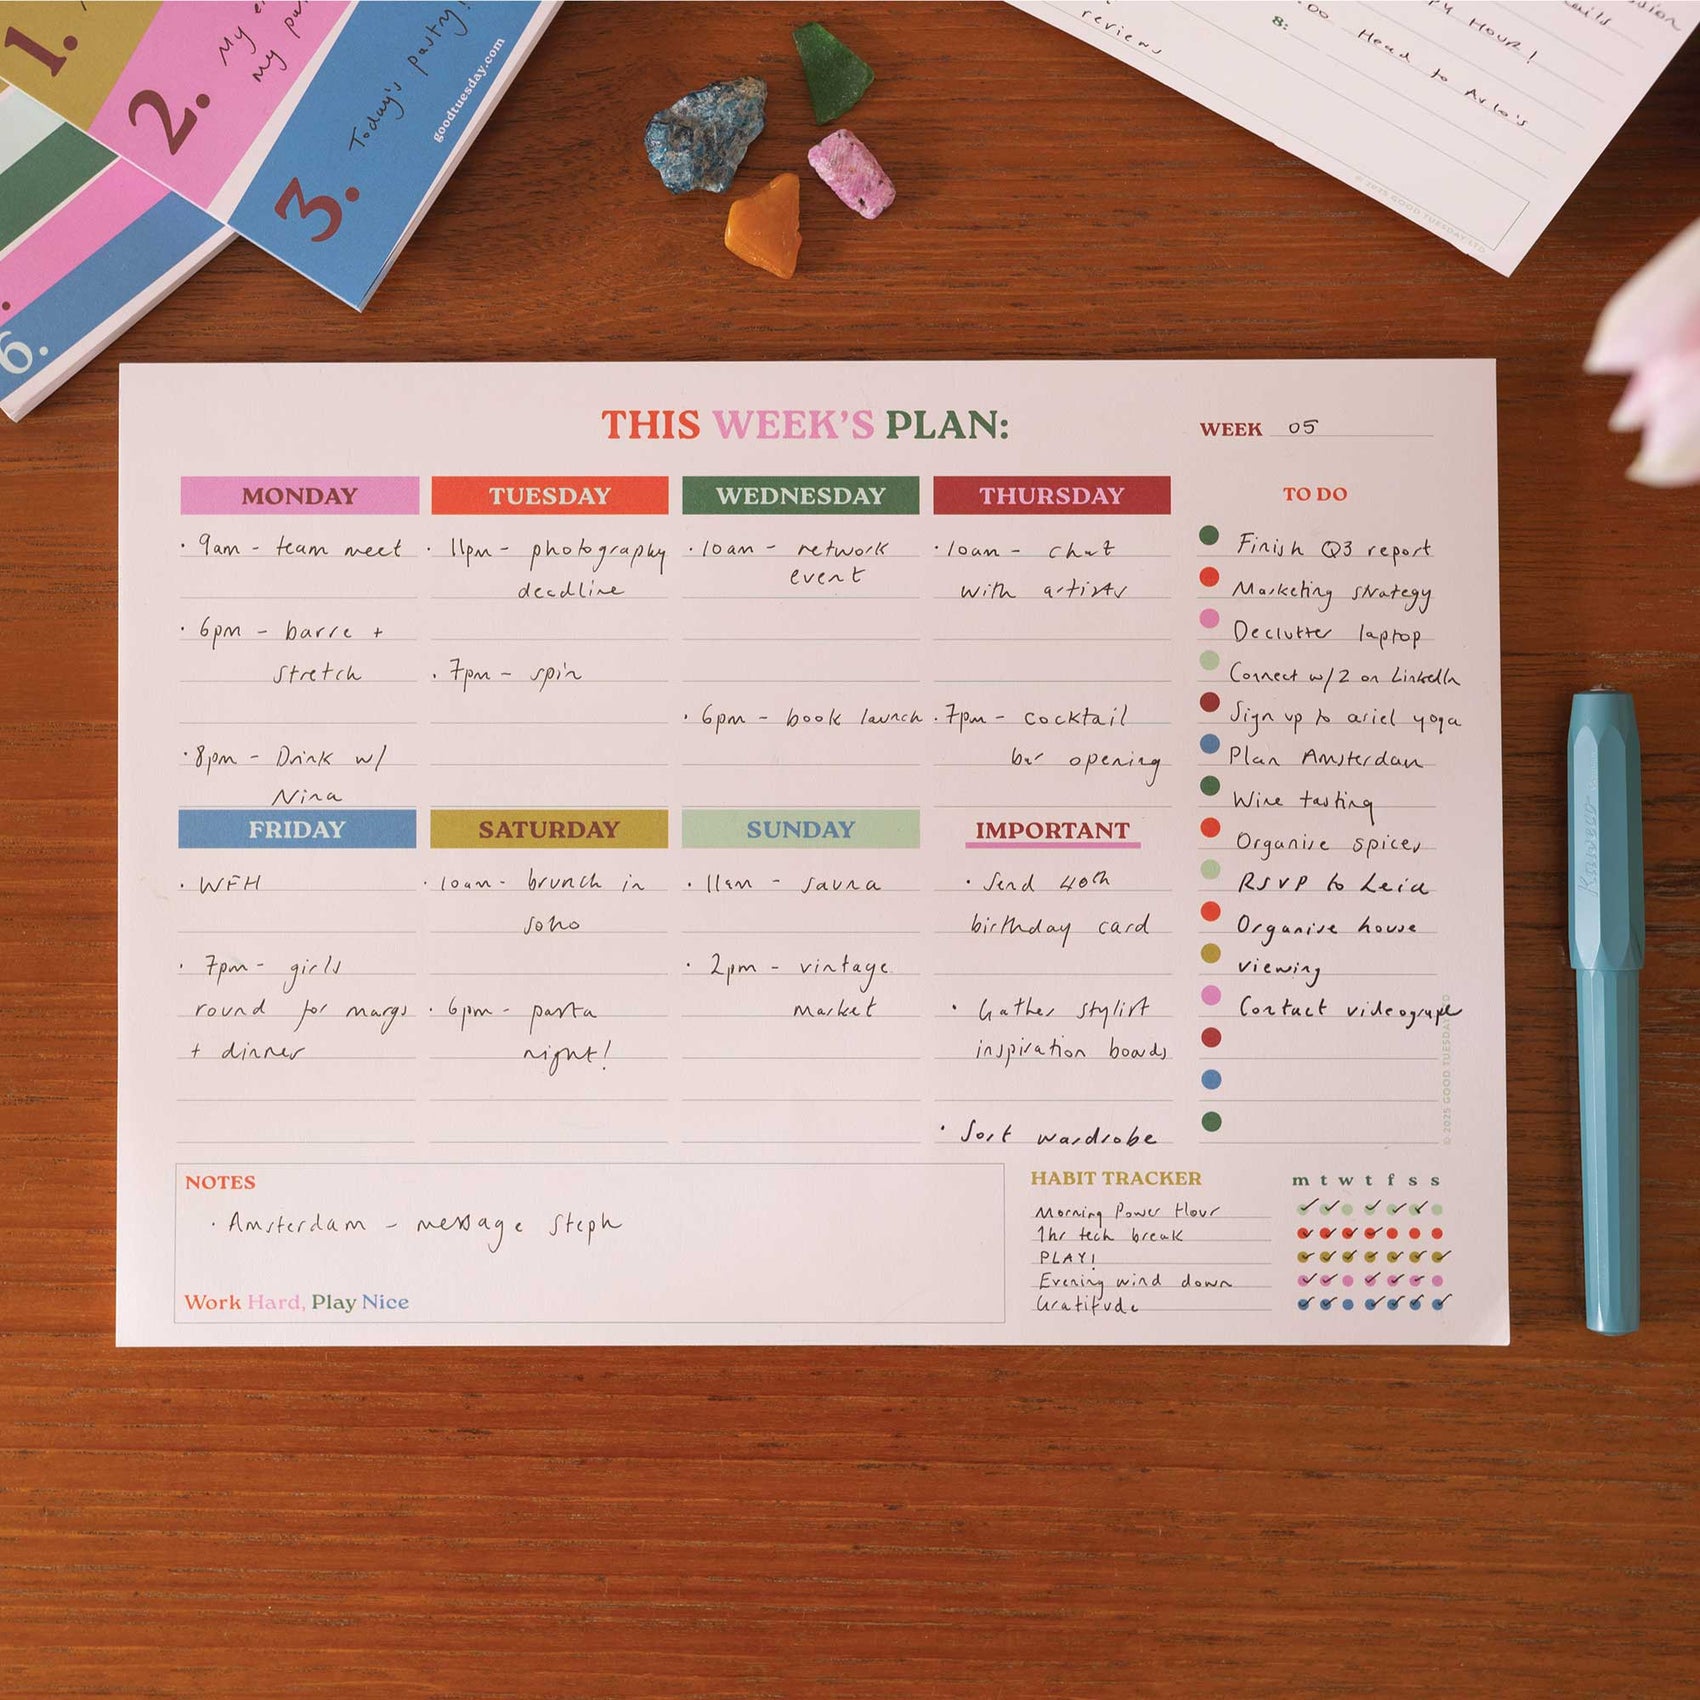 1.
2.
My
my
3.
Today's pastry!
goodtuesday.com
6.
reviews
8:
Hour!
Head to Arlo's
© 2025 GOOD TUESDAY LTD
THIS WEEK'S PLAN:
WEEK 05
MONDAY
· 9am - team meet
· 6pm - barre +
stretch
· 8pm - Drink w/
Nina
TUESDAY
· 11pm - photography
deadline
· 7pm - spin
WEDNESDAY
· 10am - network
event
· 6pm - book launch
THURSDAY
· 10am - chat
with artists
· 7pm - cocktail
bar opening
TO DO
Finish Q3 report
Marketing strategy
Declutter laptop
Connect w/2 on LinkedIn
Sign up to ariel yoga
Plan Amsterdam
Wine tasting
Organise spices
RSVP to Leia
Organise house
viewing
Contact videographer
FRIDAY
· WFH
· 7pm - girls
round for margs
+ dinner
SATURDAY
· 10am - brunch in
soho
· 6pm - pasta
night!
SUNDAY
· 11am - sauna
· 2pm - vintage
market
IMPORTANT
· Send 40th
birthday card
· Gather stylist
inspiration boards
· Sort wardrobe
© 2025 GOOD TUESDAY
NOTES
· Amsterdam - message Steph
Work Hard, Play Nice
HABIT TRACKER m t w t f s s
Morning Power Hour
1hr tech break
PLAY!
Evening wind down
Gratitude
Kaweco